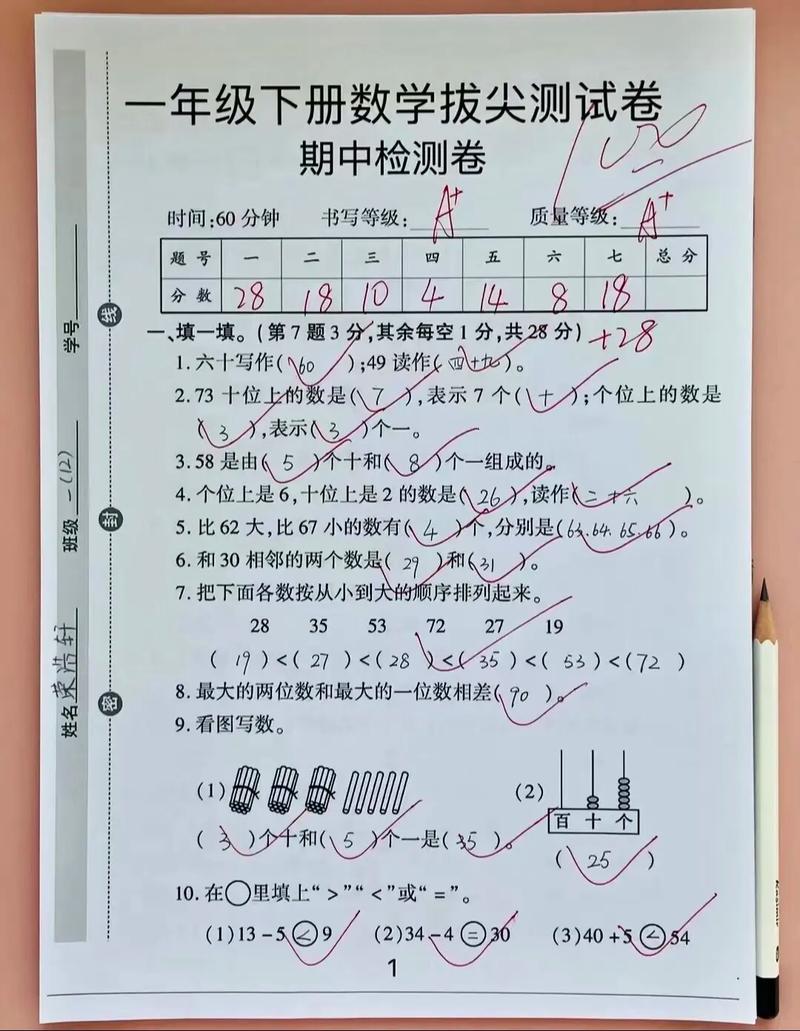 一年级下册数学拔尖测试卷
期中检测卷
100
时间:60分钟 书写等级: A+ 质量等级: A+
题号 一 二 三 四 五 六 七 总分
分数 28 18 10 4 14 8 18
一、填一填。(第7题3分,其余每空1分,共28分) +28
1.六十写作( 60 );49读作(四十九)。
2.73十位上的数是( 7 ),表示7个( 十 );个位上的数是
( 3 ),表示( 3 )个一。
3.58是由( 5 )个十和( 8 )个一组成的。
4.个位上是6,十位上是2的数是( 26 ),读作(二十六 )。
5.比62大,比67小的数有( 4 )个,分别是(63.64.65.66)。
6.和30相邻的两个数是( 29 )和( 31 )。
7.把下面各数按从小到大的顺序排列起来。
28 35 53 72 27 19
( 19 )<( 27 )<( 28 )<( 35 )<( 53 )<( 72 )
8.最大的两位数和最大的一位数相差( 90 )。
9.看图写数。
(1) (2)
百 十 个
( 3 )个十和( 5 )个一是( 35 )。
( 25 )
10.在○里填上“>”“<”或“=”。
(1)13-5<9 (2)34-4=30 (3)40+5<54
1
学号
班级 一(12)
姓名 浩轩
线
封
密